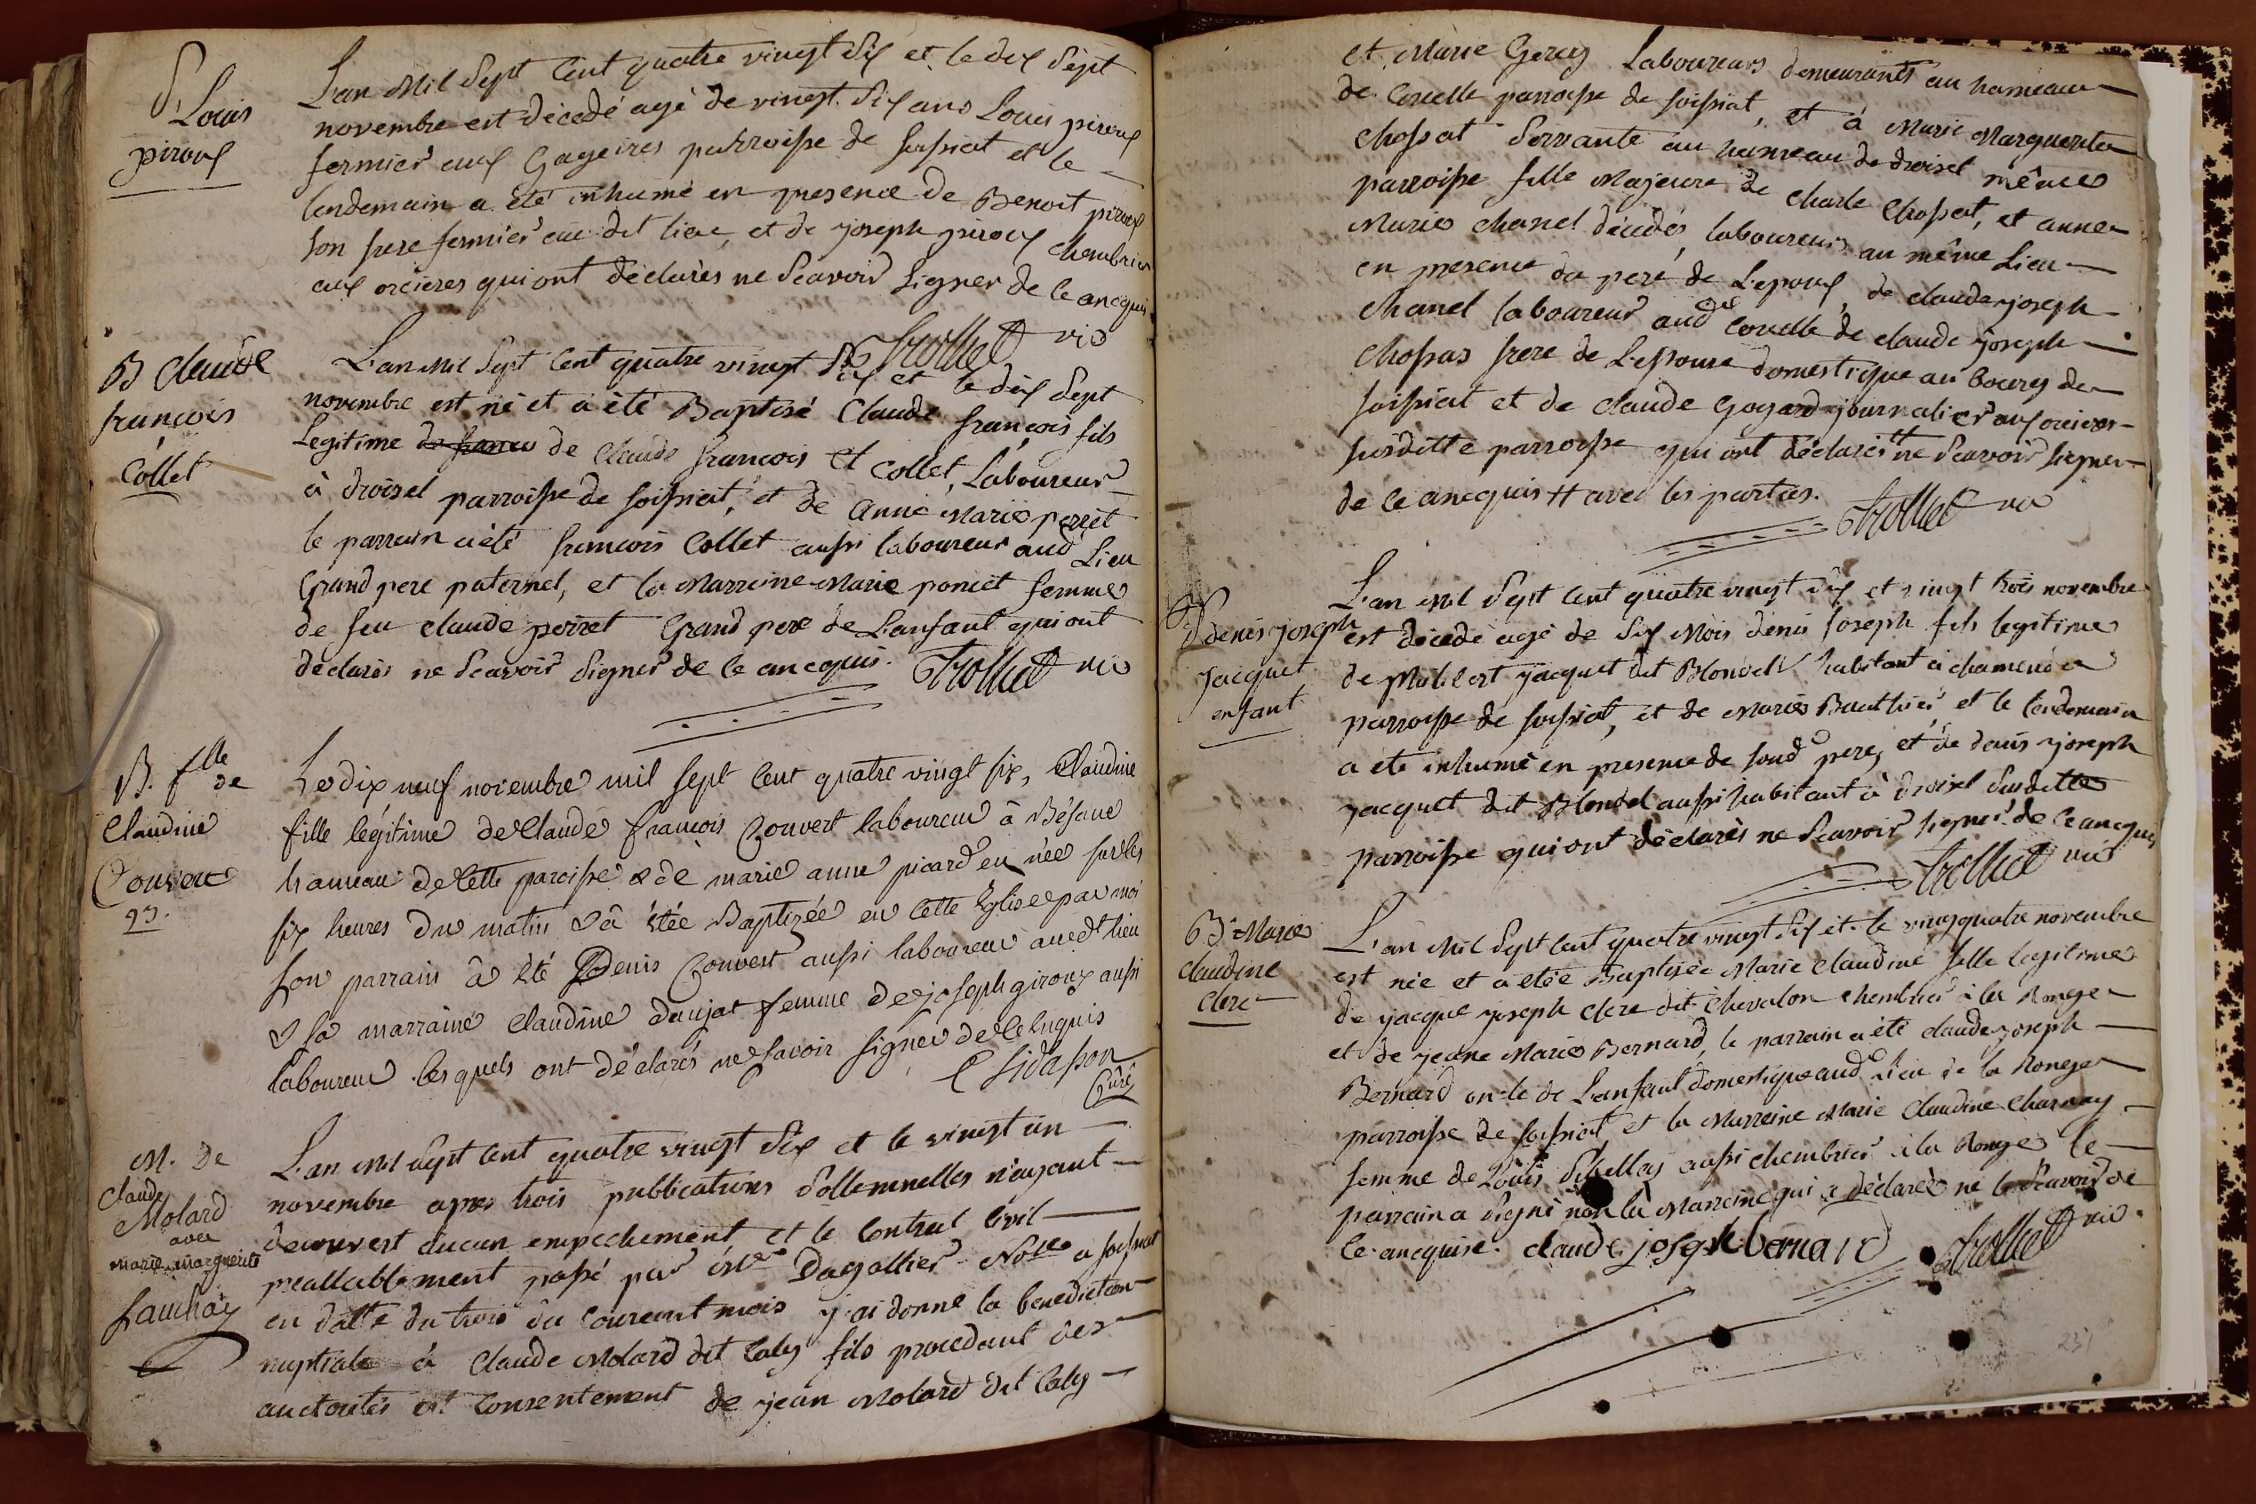 S. Louis
piroux
L'an Mil Sept Cent quatre vingt Six et le dix Sept
novembre est décedé agé de vingt Six ans Louis piroux
fermier aux Gageires parroisse de foissiat et le
lendemain a été inhumé en presence de Benoit piroux
son frere fermier au dit lieu, et de joseph piroux chembrier
aux orcieres qui ont déclarès ne Scavoir Signer de ce ancquis.
Trolliet vic
B Claude
françois
Collet
L'an Mil Sept Cent quatre vingt Six et le dix Sept
novembre est né et a été Baptisé Claude françois fils
Legitime de Claude françois Collet, Laboureur
à droisel parroisse de foissiat, et de Anne Marie perret
le parrain a été francois Collet aussi laboureur aud Lieu
Grand pere paternel, et la Marreine Marie poncet femme
de feu claude perret Grand pere de L'anfant qui ont
declarès ne Scavoir Signer de ce ancquis. Trolliet vic
B. flle
de
Claudine
Convert
93.
Le dix neuf novembre mil sept cent quatre vingt six, Claudine
fille légitime de Claude françois Convert laboureur à Béfane
hameau de cette paroisse & de marie anne picard en née sur les
six heures du matin & â étée Baptizée en cette Eglise par moi
son parrain â été Denis Convert aussi laboureur audt lieu
& sa marraine Claudine daujat femme de joseph giroux aussi
laboureur lesquels ont déclarés ne savoir signer de ce enquis
Sidasson
Curé
M. de
claude
Molard
avec
marie marguerite
L'an Mil Sept Cent quatre vingt Six et le vingt un
novembre apres trois publications Sollemnelles n'ayant
decouvert aucun empechement et le Contrat Civil
preallablement passé par Me Dagallier Nore a foissiat
en datte du trois du courant mois j'ai donné la benediction
nuptiale à Claude Molard dit Caly fils procedant des
auctorités et Consentement de jean Molard dit Caly
et Marie Gercy Laboureurs demeurants au hameau
de Corcelle parroisse de foissiat, et à Marie Marguerite
Chossat Servante au hameau de droisel même
parroisse fille Majeure de Charle Chossat, et anne
Marie Chanel décedés, laboureurs au même Lieu
en presence du pere de L'epoux, de claude joseph
Chanel laboureur aud Corcelle de claude joseph
Chossas frere de L'epouse domestique au bourg de
foissiat et de Claude Gogard journalier aux orcieres
Susditte parroisse qui ont déclarés # ne Scavoir Signer
de ce ancquis # avec les parties. Trolliet vic
S denis joseph
jacquet
enfant
L'an Mil Sept Cent quatre vingt Six et vingt trois novembre
est décedé agé de Six Mois denis joseph fils legitime
de Philibert jacquet dit Blondel habitant à chamenda
parroisse de foissiat, et de Marie Bauthier et le lendemain
a été inhumé en presence de Soud pere, et de denis joseph
jacquet dit Blondel aussi habitant à droisel Susditte
parroisse qui ont déclarès ne Scavoir Signer de ce ancquis
Trolliet vic
B. Marie
Claudine
Clerc
L'an Mil Sept Cent quatre vingt Six et le vingquatre novembre
est née et a étée Baptisée Marie Claudine fille Legitime
de jacque joseph clere dit Chevalon chembrier à la Ronge
et de jeane Marie Bernard, le parrain a été claude joseph
Bernard oncle de L'anfant domestique aud Lieu de la Ronge
parroisse de foissiat, et la Marreine Marie Claudine Charnay
femme de Louis Sibellas aussi chembrier à la Ronge le
parrain a Signé non la Marreine qui a déclarée ne le Scavoir de
ce ancquise. claude joseph bernard Trolliet vic.
231